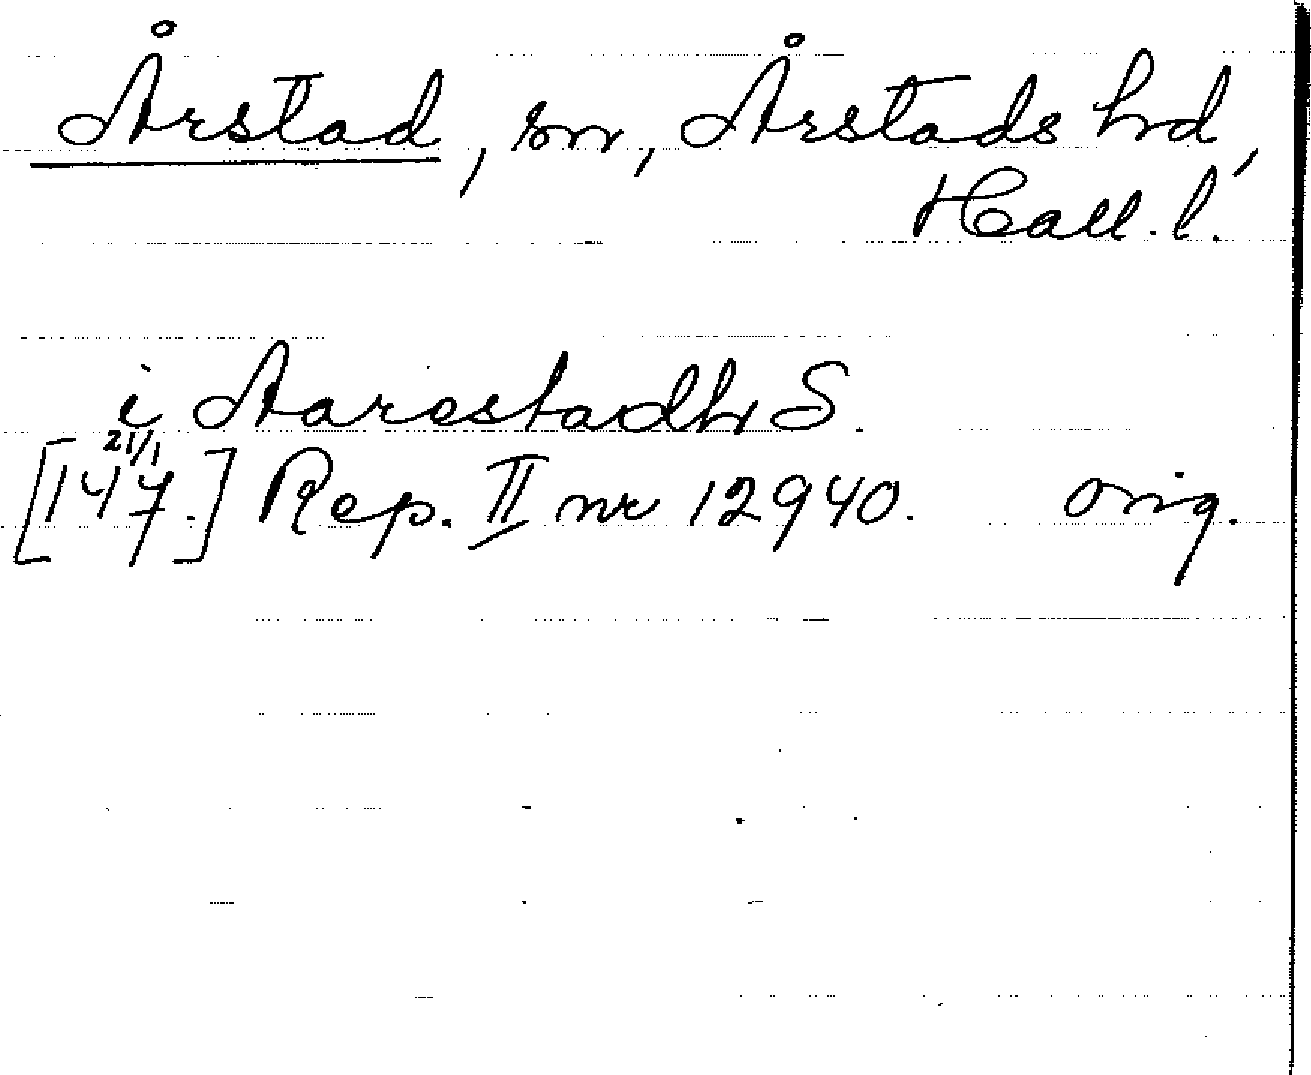 Årstad, sn, Årstads hd,
Hall. l.
i Aarestadh S.
21/1
[147.] Rep. II nr 12940. orig.